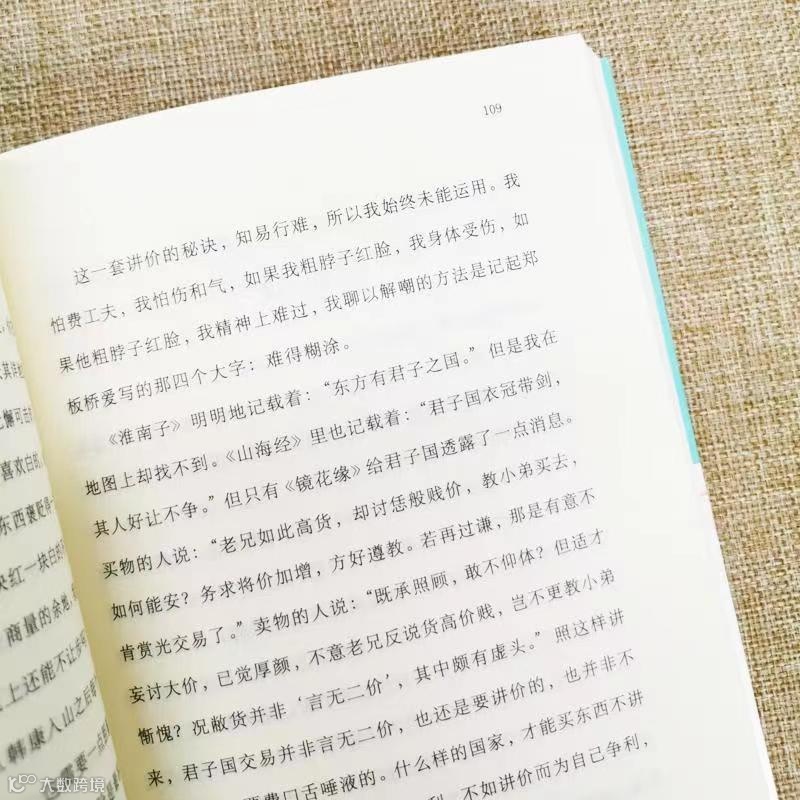 109
这一套讲价的秘诀，知易行难，所以我始终未能运用。我
怕费工夫，我怕伤和气，如果我粗脖子红脸，我身体受伤，如
果他粗脖子红脸，我精神上难过，我聊以解嘲的方法是记起郑
板桥爱写的那四个大字：难得糊涂。
《淮南子》明明地记载着：“东方有君子之国。”但是我在
地图上却找不到。《山海经》里也记载着：“君子国衣冠带剑，
其人好让不争。”但只有《镜花缘》给君子国透露了一点消息。
买物的人说：“老兄如此高货，却讨恁般贱价，教小弟买去，
如何能安？务求将价加增，方好遵教。若再过谦，那是有意不
肯赏光交易了。”卖物的人说：“既承照顾，敢不仰体？但适才
妄讨大价，已觉厚颜，不意老兄反说货高价贱，岂不更教小弟
惭愧？况敝货并非‘言无二价’，其中颇有虚头。”照这样讲
来，君子国交易并非言无二价，也还是要讲价的，也并非不
要费口舌唾液的。什么样的国家，才能买东西不讲
利，不如讲价而为自己争利，
懈可击的
喜欢白的
东西褒贬得一
块红一块白的
商量的余地，
上还能不让步
韩康入山之后
要一点的
大数跨境